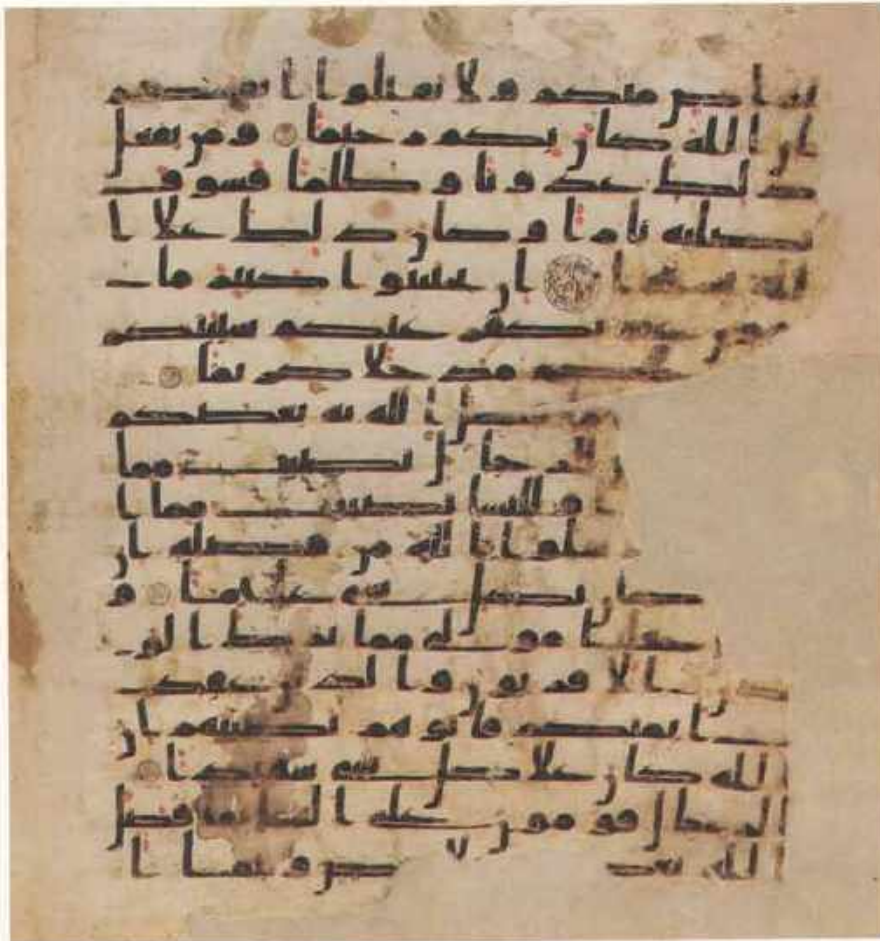 تراض منكم ولا تقتلوا انفسكم
ان الله كان بكم رحيما ومن يفعل
ذلك عدونا وظلما فسوف
نصليه نارا وكان ذلك علا ا
لله يسيرا ان تجتنبوا كبير ما
نكفر عنكم سيتكم
مدخلا كريما
فضل الله به بعضكم
للرجال نصيب مما
وللنسا نصيب مما ا
وسلوا الله من فضله ان
كان بكل شي عليما و
جعلنا مولي مما ترك الو
الاقربون والذين عقد
ايمنكم فاتوهم نصيبهم ان
الله كان علا كل شي شهيدا
الرجال قومون علي النسا بما فضل
الله بعض وبما ا